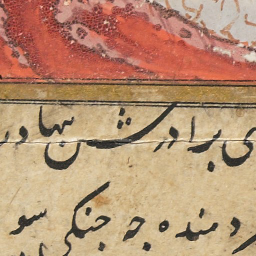 ی برادرش بهادر
دمنده چه جنگی سو